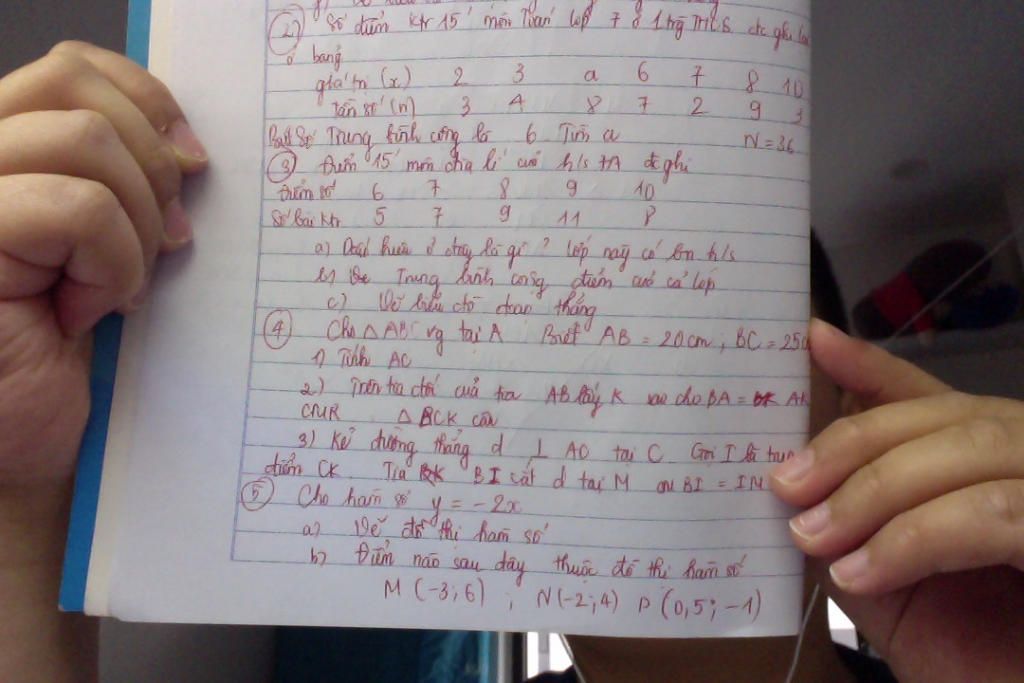 ② Số điểm ktr 15' môn Toán lớp 7 ở 1 trg THCS đc ghi
ở bảng
giá trị (x) 2 3 a 6 7 8 10
Tần số (n) 3 4 8 7 2 9 3
Biết Số Trung bình cộng là 6 Tìm a N = 36
③ Điểm 15' môn địa lí của h/s 7A đc ghi
Điểm số 6 7 8 9 10
Số bài ktr 5 7 9 11 8
a) Dấu hiệu ở đây là gì? lớp này có bn h/s
b) Trung bình cộng điểm của cả lớp
c) Vẽ biểu đồ đoạn thẳng
④ Cho △ABC vg tại A Biết AB = 20cm; BC = 25
1) Tính AC
2) Trên tia đối của tia AB lấy K sao cho BA = AK
CMR △BCK cân
3) Kẻ đường thẳng d ⊥ AC tại C Gọi I là trung
điểm CK Tia BI cắt d tại M BI = IM
⑤ Cho hàm số y = -2x
a) Vẽ đồ thị hàm số
b) Điểm nào sau đây thuộc đồ thị hàm số
M (-3; 6) ; N (-2; 4) P (0,5; -1)